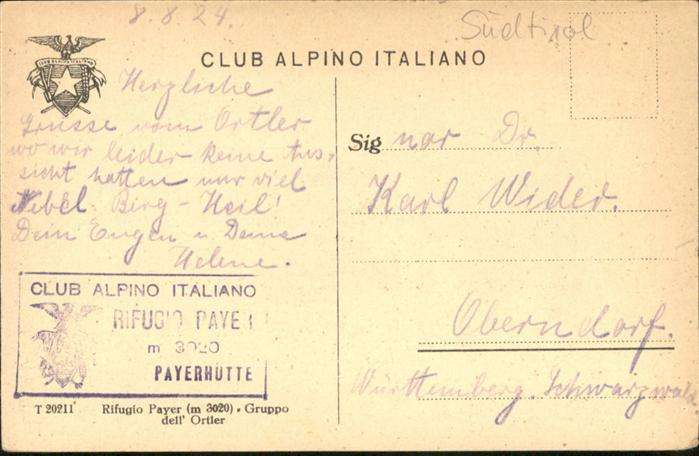 8.8.24.
Südtirol
CLUB ALPINO ITALIANO
CLUB ALPINO ITALIANO
Herzliche
Grüsse vom Ortler
wo wir leider keine Aus-
sicht hatten nur viel
Nebel. Berg-Heil!
Dein Eugen u Deine
Helene.
Signor Dr.
Karl Wider.
Oberndorf.
Württemberg. Schwarzwald
CLUB ALPINO ITALIANO
RIFUGIO PAYER
m 3020
PAYERHÜTTE
T 20211
Rifugio Payer (m 3020) - Gruppo
dell' Ortler